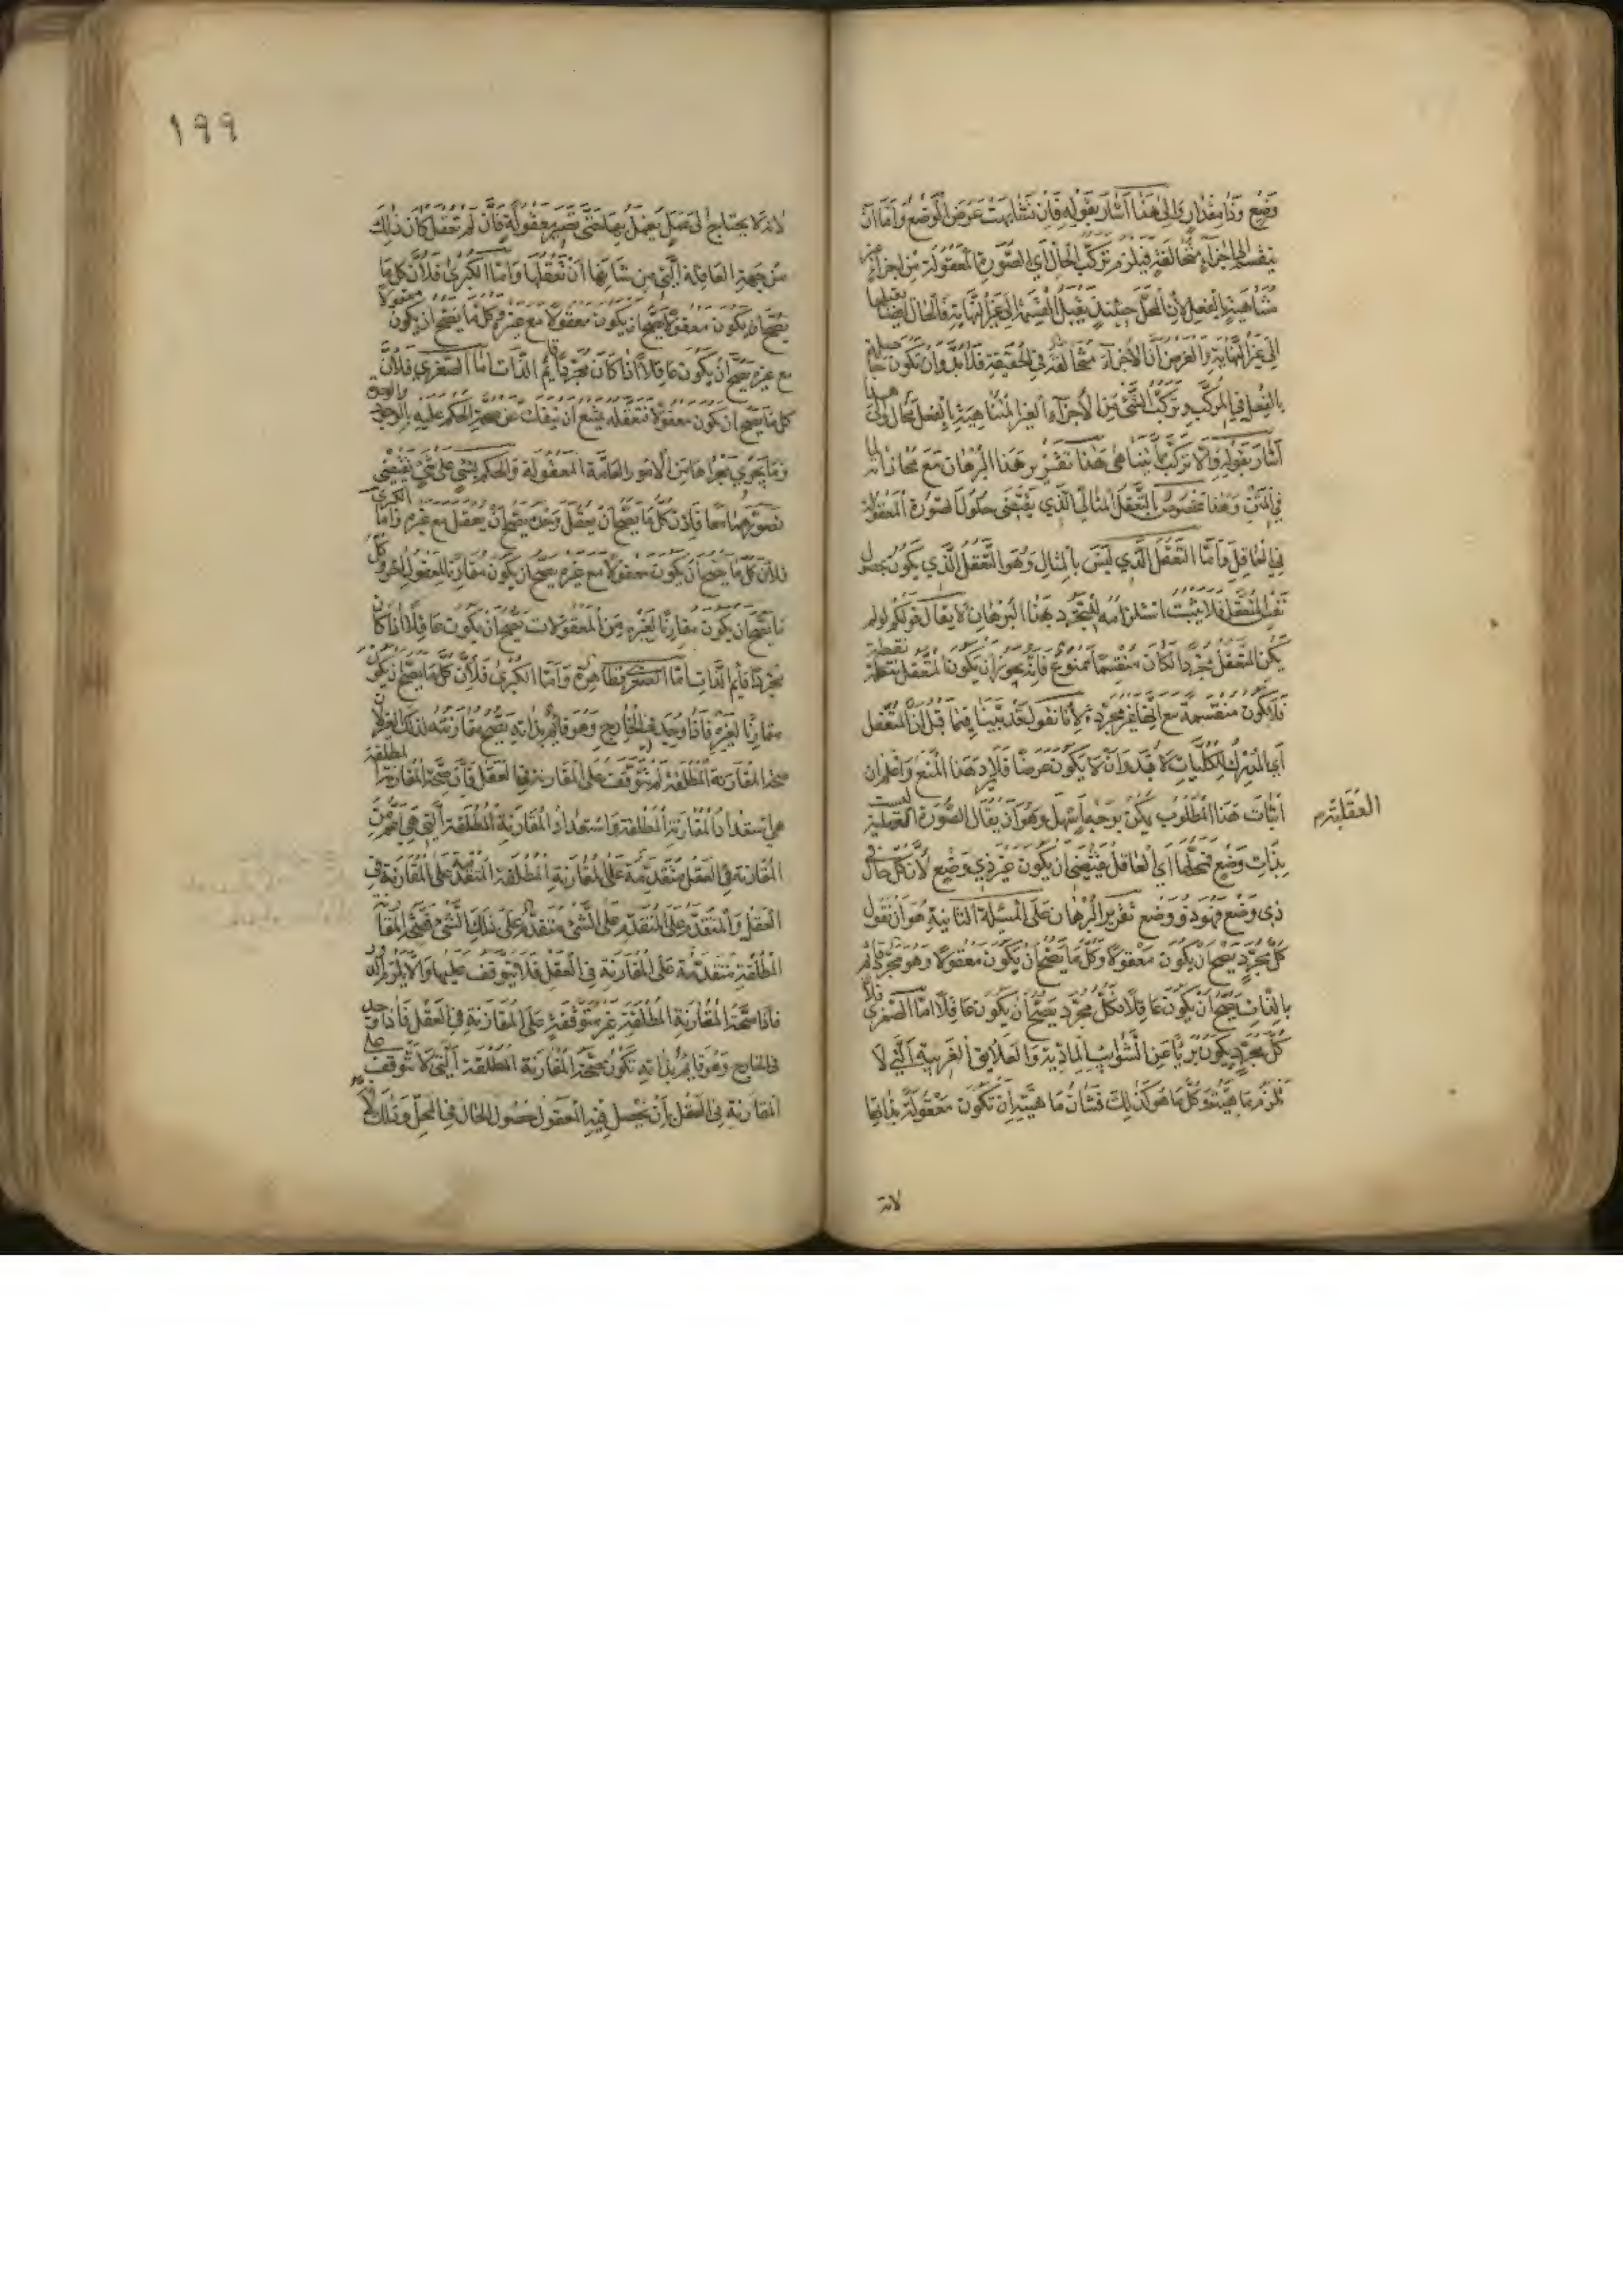 وضع وذا مقدار والى هذا اشار بقوله فان تشابهت عرض الوضع واما ان
ينقسم الى اجزاء متخالفة فيلزم تركب الحال اي الصورة المعقولة من اجزاء غير
متناهية بالفعل لان المحل حينئذ يقبل القسمة الى غير النهاية فالحال ايضا يقبلها
الى غير النهاية والفرض ان الاجزاء متخالفة في الحقيقة فلا بد وان تكون حاصلة
بالفعل في المركب وتركب الشئ من الاجزاء الغير المتناهية بالفعل محال والى هذا
اشار بقوله والا تركب مما لا يتناهى هذا تقرير هذا البرهان مع محاذاته لما
في المتن وهذا مخصوص بالتعقل المثالي الذي يقتضي حلول الصورة المعقولة
في العاقل واما التعقل الذي ليس بالمثال وهو التعقل الذي يكون بحصول
نفس المتعقل فلا يثبت استلزامه للتجرد بهذا البرهان لا يقال قولكم لو لم
يكن المتعقل مجردا لكان منقسما ممنوع فانه يجوز ان يكون المتعقل نقطة
فلا يكون منقسمة مع انها غير مجردة لانا نقول قد بينا فيما قبل ان المتعقل
اي المدرك للكليات لا بد وان لا يكون عرضا فلا يرد هذا المنع واعلم ان
اثبات هذا المطلوب يمكن بوجه اسهل وهو ان يقال الصورة العقلية ليست
العقلية م
بذات وضع فمحلها اي العاقل يقتضي ان يكون غير ذي وضع لان كل حال في
ذي وضع فهو ذو وضع تقرير البرهان على المسئلة الثانية هو ان نقول
كل مجرد يصح ان يكون معقولا وكل ما يصح ان يكون معقولا وهو مجرد قائم
بالذات يصح ان يكون عاقلا فكل مجرد يصح ان يكون عاقلا اما الصغرى فلان
كل مجرد يكون بريا عن الشوايب المادية والعلايق الغريبة التي لا
تلزم ماهيته وكل ما هو كذلك فشان ماهيته ان تكون معقولة بذاتها
لانه
١٩٩
لانه لا يحتاج الى عمل يعمل بها حتى تصير معقولة فان لم تعقل كان ذلك
من جهة العاقلة التي من شانها ان تعقلها واما الكبرى فلان كل ما
يصح ان يكون معقولا يصح ان يكون معقولا مع غيره وكل ما يصح ان يكون معقولا
مع غيره يصح ان يكون عاقلا اذا كان مجردا قايم الذات اما الصغرى فلان
كل ما يصح ان يكون معقولا فتعقله يمتنع ان ينفك عن صحة الحكم عليه بالوجود والوحدة
وما يجري مجراها من الامور العامة المعقولة والحكم بشئ على شئ يقتضي
تصورهما معا فاذن كل ما يصح ان يعقل وحده يصح ان يعقل مع غيره واما الكبرى
فلان كل ما يصح ان يكون معقولا مع غيره يصح ان يكون مقارنا لمعقول اخر وكل
ما يصح ان يكون مقارنا لغيره من المعقولات يصح ان يكون عاقلا اذا كان
مجردا قايم الذات اما الصغرى فظاهرة واما الكبرى فلان كل ما يصح ان يكون
مقارنا لغيره فاذا وجد في الخارج وهو قائم بذاته يصح مقارنته لذلك الغير لان
صحة المقارنة المطلقة لم تتوقف على المقارنة في العقل فان صحة المقارنة المطلقة
هي استعداد المقارنة المطلقة واستعداد المقارنة المطلقة التي هي اعم من
المقارنة في العقل متقدمة على المقارنة المطلقة المتقدمة على المقارنة في
العقل والمتقدم على المتقدم على الشئ متقدم على ذلك الشئ فصحة المقارنة
المطلقة متقدمة على المقارنة في العقل فلا تتوقف عليها والا يلزم الدور
فاذا صحة المقارنة المطلقة غير متوقفة على المقارنة في العقل فاذا وجد
في الخارج وهو قايم بذاته تكون صحة المقارنة المطلقة التي لا تتوقف على
المقارنة في العقل بان يحصل فيه المعقول حصول الحال في المحل وذلك لانه